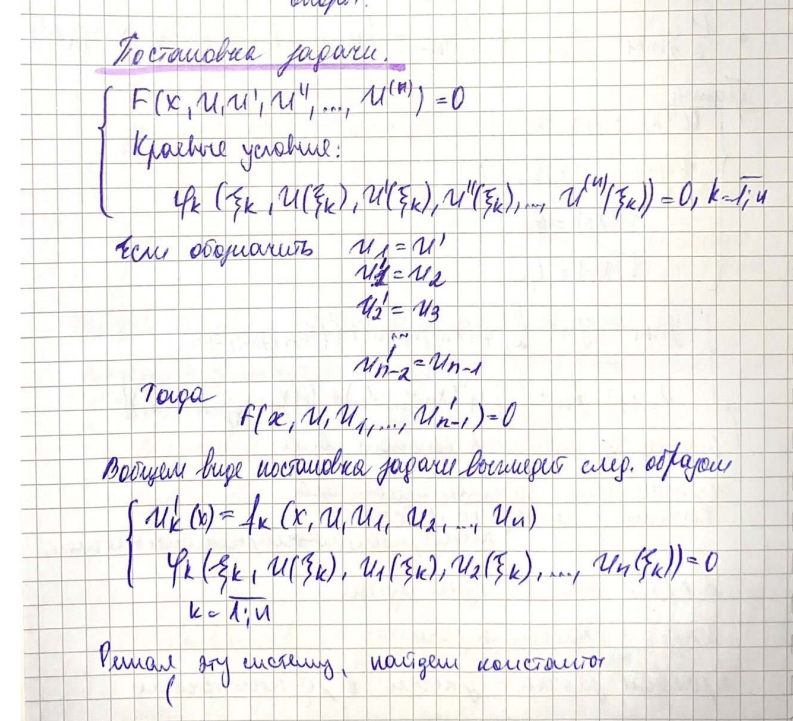 Постановка задачи.
F(x, u, u', u'', ..., u⁽ⁿ⁾) = 0
Краевые условие:
φₖ (ξₖ, u(ξₖ), u'(ξₖ), u''(ξₖ), ..., u⁽ⁿ⁾(ξₖ)) = 0, k = 1;n
Если обозначить u₁ = u'
u₁' = u₂
u₂' = u₃
...
u'ₙ₋₂ = uₙ₋₁
Тогда
F(x, u, u₁, ..., u'ₙ₋₁) = 0
В общем виде постановка задачи выглядит след. образом
uₖ'(x) = fₖ (x, u, u₁, u₂, ..., uₙ)
φₖ (ξₖ, u(ξₖ), u₁(ξₖ), u₂(ξₖ), ..., uₙ(ξₖ)) = 0
k = 1;n
Решая эту систему, найдем константы
(